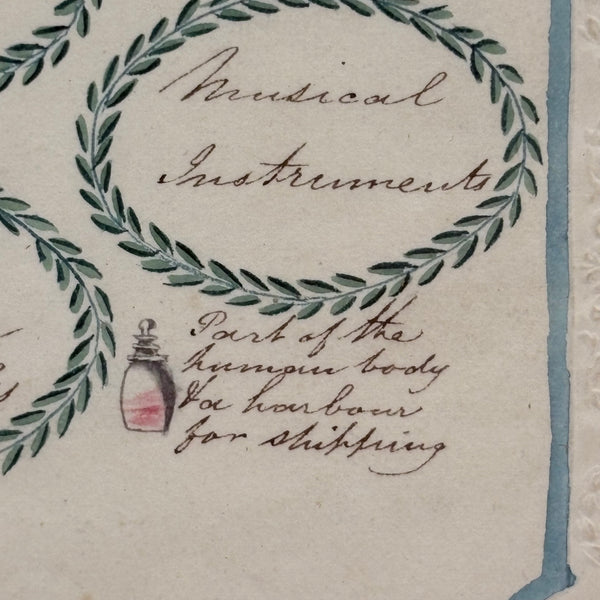 Musical
Instruments
Part of the
human body
& a harbour
for shipping